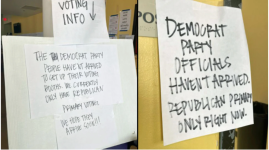 VOTING
INFO
THE DEMOCRAT PARTY
PEOPLE HAVE NOT ARRIVED
TO SET UP THEIR VOTING
BOOTHS. WE CURRENTLY
ONLY HAVE REPUBLICAN
PRIMARY VOTING.
WE HOPE THEY
ARRIVE SOON!!
DEMOCRAT
PARTY
OFFICIALS
HAVEN'T ARRIVED.
REPUBLICAN PRIMARY
ONLY RIGHT NOW.